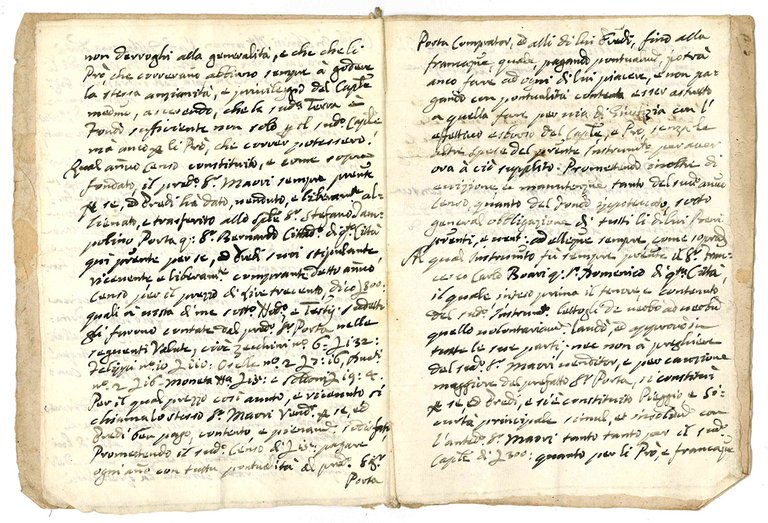 non derroghi alla generalità, e che che li
Prò, che correrano abbiano sempre à godere
la stessa anzianità, e privileggio del Caple
medmo, asserendo, che la sudª Terra e
Fondi sufficiente non solo p il sudº Caple
ma anco p li Prò, che correr potessero.
Qual annuo Censo constituito, e come sopra
fondato, il predº Sr. Maori sempre prente
p se, ed Eredi hà dato, venduto, e liberamte al-
lienato, e trasferito allo Sr. Stefano
Porta q: Sr. Bernardo Cittadº di qta Città
qui prente per se, ed Eredi suoi stipulante,
ricevente e liberamte comprante detto annuo
Censo per il prezzo di Lire trecento, dico L 300:
quali à vista di me Nodº e Testij
furono contate dal predº Sr. Porta nelle
seguenti Valute, cioè Zecchini nº 6: L 132:
Filippi nº 10 L 110: nº 2 L
nº 2 L 16 moneta L 9: 4
Per il qual prezzo così avuto, e ricevuto si
chiama lo stesso Sr. Maori Vendre p se, ed
Eredi ben pago, contento e
Promettendo il sudº Censo di L 15: pagare
ogni anno con tutta pontualità al predº Sigr
Porta
Porta Comprator, ed alli di lui Eredi, fino alla
francazne quale, pagando pontualmte, potrà
anco fare ad ogni di lui piacere, e non pa-
gando con pontualità esser astretto
a quella fare per via di Giustizia con l'
effettivo esborso del Caple, e Prò, senza le
altre spese del prente Instrumto per aver
ora à ciò supplito: Promettendo inoltre di
evizione e manutenzne tanto del sudº annuo
Censo, quanto del fondo ippotecato, sotto
general obbligazione di tutti li di lui beni
prenti, e venti, ad elleggne sempre, come sopra
Al qual Instrumto fù sempre prente il Sr. Fran-
cesco Carlo Boari q: Sr. Domenico di qta Città
il quale inteso prima il tenore, e contenuto
del sudº Instrumto lettogli de verbo ad verbum
quello volontariamte laudò, ed approvò in
tutte le sue parti: nec non à preghiere
del sudº Sr. Maori venditore, e per cauzione
maggiore del prefatto Sr. Porta, si constituì
p se, ed Eredi, e si è constituito Pieggio e Si-
curtà principale simul, et insolidum con
l'antedº Sr. Maori tanto tanto per il sudº
Caple di L 300: quanto per li Prò, e francazne